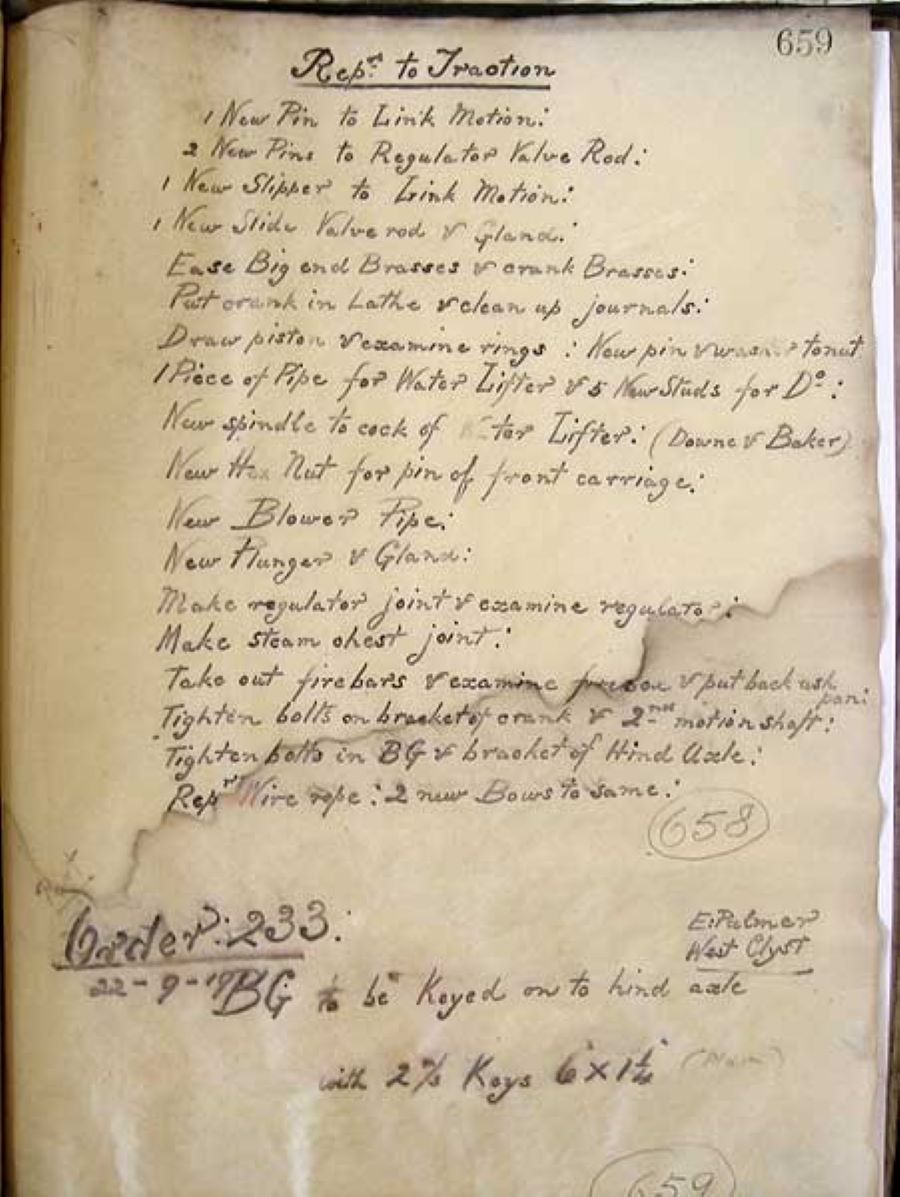 659
Repʳˢ to Traction
1 New Pin to Link Motion:
2 New Pins to Regulator Valve Rod:
1 New Slipper to Link Motion:
1 New Slide Valve rod & Gland:
Ease Big end Brasses & crank Brasses:
Put crank in Lathe & clean up journals:
Draw piston & examine rings : New pin & washer to nut
1 Piece of Pipe for Water Lifter & 5 New Studs for Dº:
New spindle to cock of Water Lifter: (Downe & Baker)
New Hex Nut for pin of front carriage:
New Blower Pipe:
New Plunger & Gland:
Make regulator joint & examine regulator:
Make steam chest joint:
Take out firebars & examine firebox & put back ash
pan:
Tighten bolts on bracket of crank & 2ⁿᵈ motion shaft:
Tighten bolts in BG & bracket of Hind Axle:
Repʳ Wire rope: 2 new Bows to same:
658
Order: 233:
E: Palmer
West Clyst
22-9-19 BG to be Keyed on to hind axle
with 2 Keys 6" x 1¼"
659